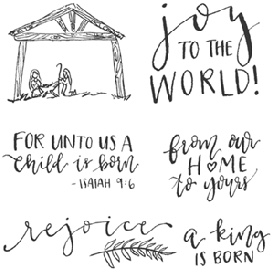 joy
TO THE
WORLD!
FOR UNTO US A
child is born
- ISAIAH 9:6
from our
HOME
to yours
rejoice
a king
IS BORN